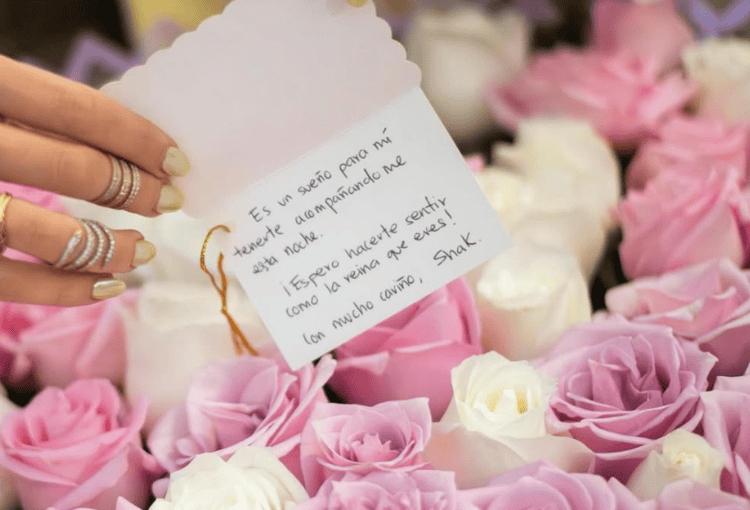 Es un sueño para mí
tenerte acompañandome
esta noche.
¡Espero hacerte sentir
como la reina que eres!
Con mucho cariño, Shak.